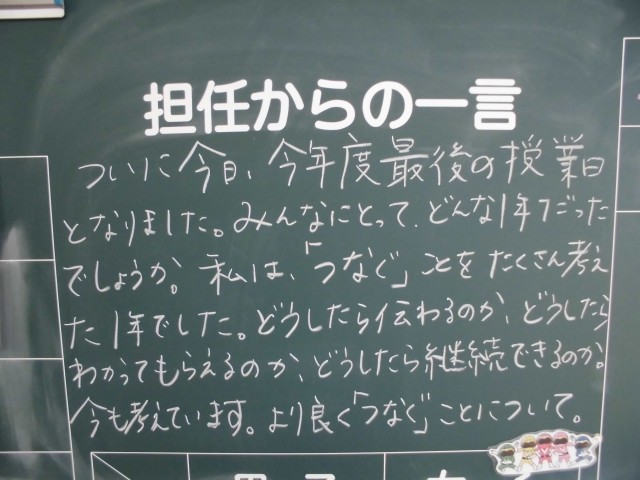 担任からの一言
ついに今日、今年度最後の授業日
となりました。みんなにとって、どんな1年だった
でしょうか。私は、「つなぐ」ことをたくさん考え
た1年でした。どうしたら伝わるのか、どうしたら
わかってもらえるのか、どうしたら継続できるのか。
今も考えています。より良く「つなぐ」ことについて。